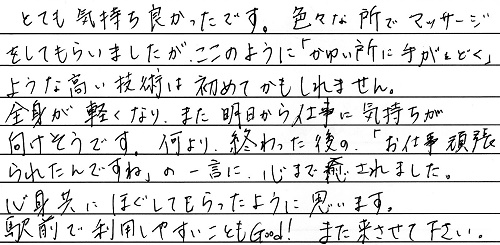 とても気持ち良かったです。色々な所でマッサージ
をしてもらいましたが、ここのように「かゆい所に手がとどく」
ような高い技術は初めてかもしれません。
全身が軽くなり、また明日から仕事に気持ちが
向けそうです。何より、終わった後の、「お仕事頑張
られたんですね」の一言に、心まで癒されました。
心身共にほぐしてもらったように思います。
駅前で利用しやすいこともGood! また来させて下さい。